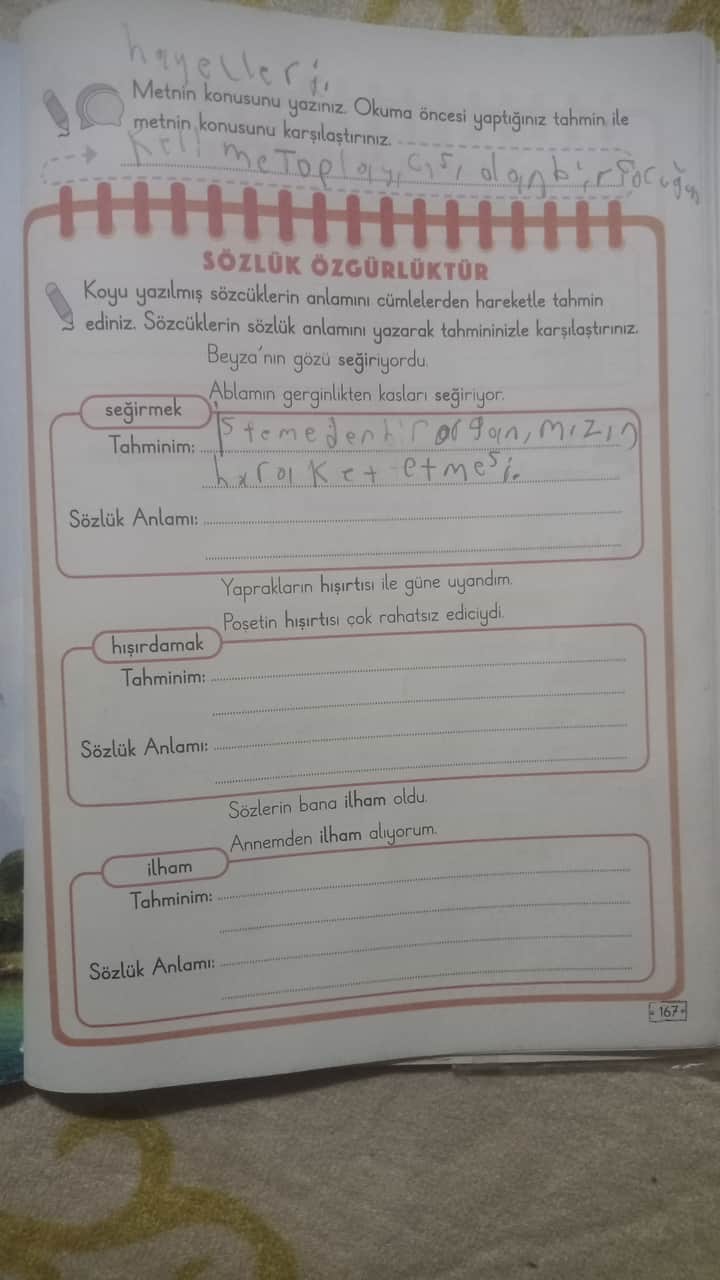 hayelleri.
Metnin konusunu yazınız. Okuma öncesi yaptığınız tahmin ile
metnin konusunu karşılaştırınız.
Kelime Toplayıcısı olan bir çocuğun
SÖZLÜK ÖZGÜRLÜKTÜR
Koyu yazılmış sözcüklerin anlamını cümlelerden hareketle tahmin
ediniz. Sözcüklerin sözlük anlamını yazarak tahmininizle karşılaştırınız.
Beyza'nın gözü seğiriyordu.
Ablamın gerginlikten kasları seğiriyor.
seğirmek
Tahminim: İstemeden bir organımızın
haraket etmesi.
Sözlük Anlamı:
Yaprakların hışırtısı ile güne uyandım.
Poşetin hışırtısı çok rahatsız ediciydi.
hışırdamak
Tahminim:
Sözlük Anlamı:
Sözlerin bana ilham oldu.
Annemden ilham alıyorum.
ilham
Tahminim:
Sözlük Anlamı:
167